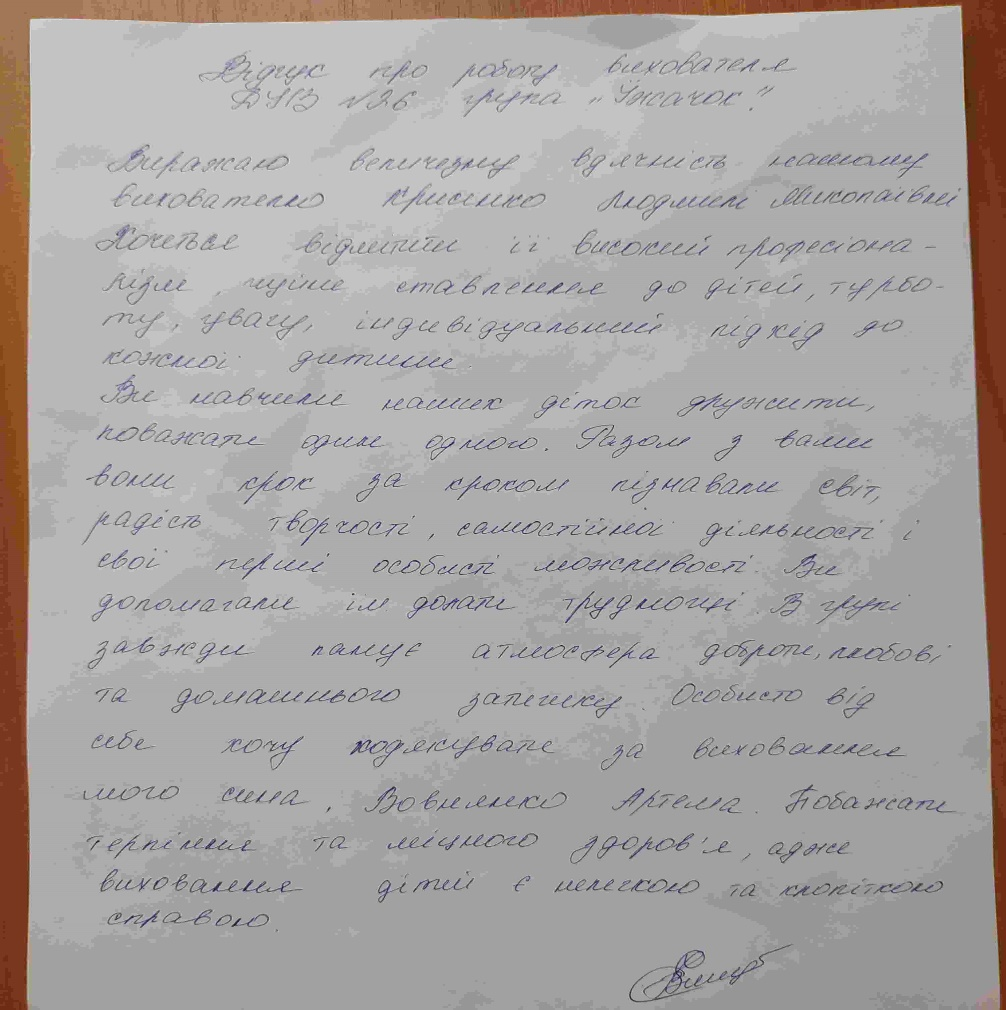 Відгук про роботу вихователя
ДНЗ №26 група "Їжачок".
Виражаю величезну вдячність нашому
вихователю Крисенко Людмилі Миколаївні
Хочеться відмітити її високий професіона-
лізм, щире ставлення до дітей, турбо-
ту, увагу, індивідуальний підхід до
кожної дитини.
Ви навчили наших діток дружити,
поважати один одного. Разом з вами
вони крок за кроком пізнавали світ,
радість творчості, самостійної діяльності і
свої перші особисті можливості. Ви
допомагали їм долати труднощі. В групі
завжди панує атмосфера доброти, любові
та домашнього затишку. Особисто від
себе хочу подякувати за виховання
мого сина, Вовнянко Артема. Побажати
терпіння та міцного здоров'я, адже
виховання дітей є нелегкою та клопіткою
справою.